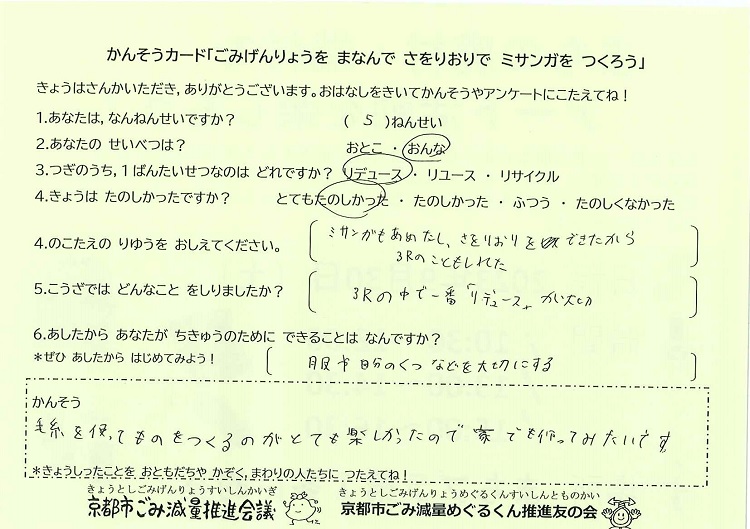 かんそうカード「ごみげんりょうを まなんで さをりおりで ミサンガを つくろう」
きょうはさんかいただき，ありがとうございます。おはなしをきいてかんそうやアンケートにこたえてね！
1.あなたは，なんねんせいですか？ （ 5 ）ねんせい
2.あなたの せいべつは？ おとこ ・ おんな
3.つぎのうち，1ばんたいせつなのは どれですか？ リデュース ・ リユース ・ リサイクル
4.きょうは たのしかったですか？ とてもたのしかった ・ たのしかった ・ ふつう ・ たのしくなかった
4.のこたえの りゆうを おしえてください。
ミサンガもあめたし、さをりおりを できたから
3Rのこともしれた
5.こうざでは どんなこと をしりましたか？
3Rの中で一番「リデュース」が大切
6.あしたから あなたが ちきゅうのために できることは なんですか？
*ぜひ あしたから はじめてみよう！
服や自分のくつなどを大切にする
かんそう
毛糸を使ってものをつくるのがとても楽しかったので家でも作ってみたいです
*きょうしったことを おともだちや かぞく，まわりの人たちに つたえてね！
きょうとしごみげんりょうすいしんかいぎ きょうとしごみげんりょうめぐるくんすいしんとものかい
京都市ごみ減量推進会議 京都市ごみ減量めぐるくん推進友の会